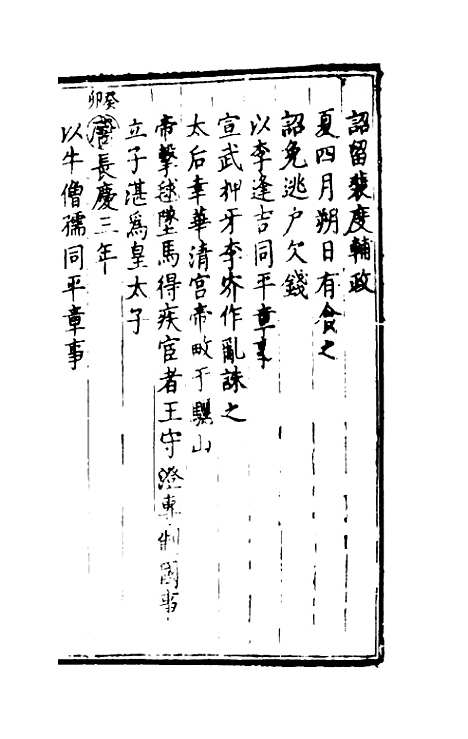 詔留裴度輔政
夏四月朔日有食之
詔免逃户欠錢
以李逢吉同平章事
宣武押牙李㝏作亂誅之
太后幸華清宫帝畋于驪山
帝擊毬墜馬得疾宦者王守澄專制國事
立子湛爲皇太子
癸卯
唐長慶三年
以牛僧孺同平章事